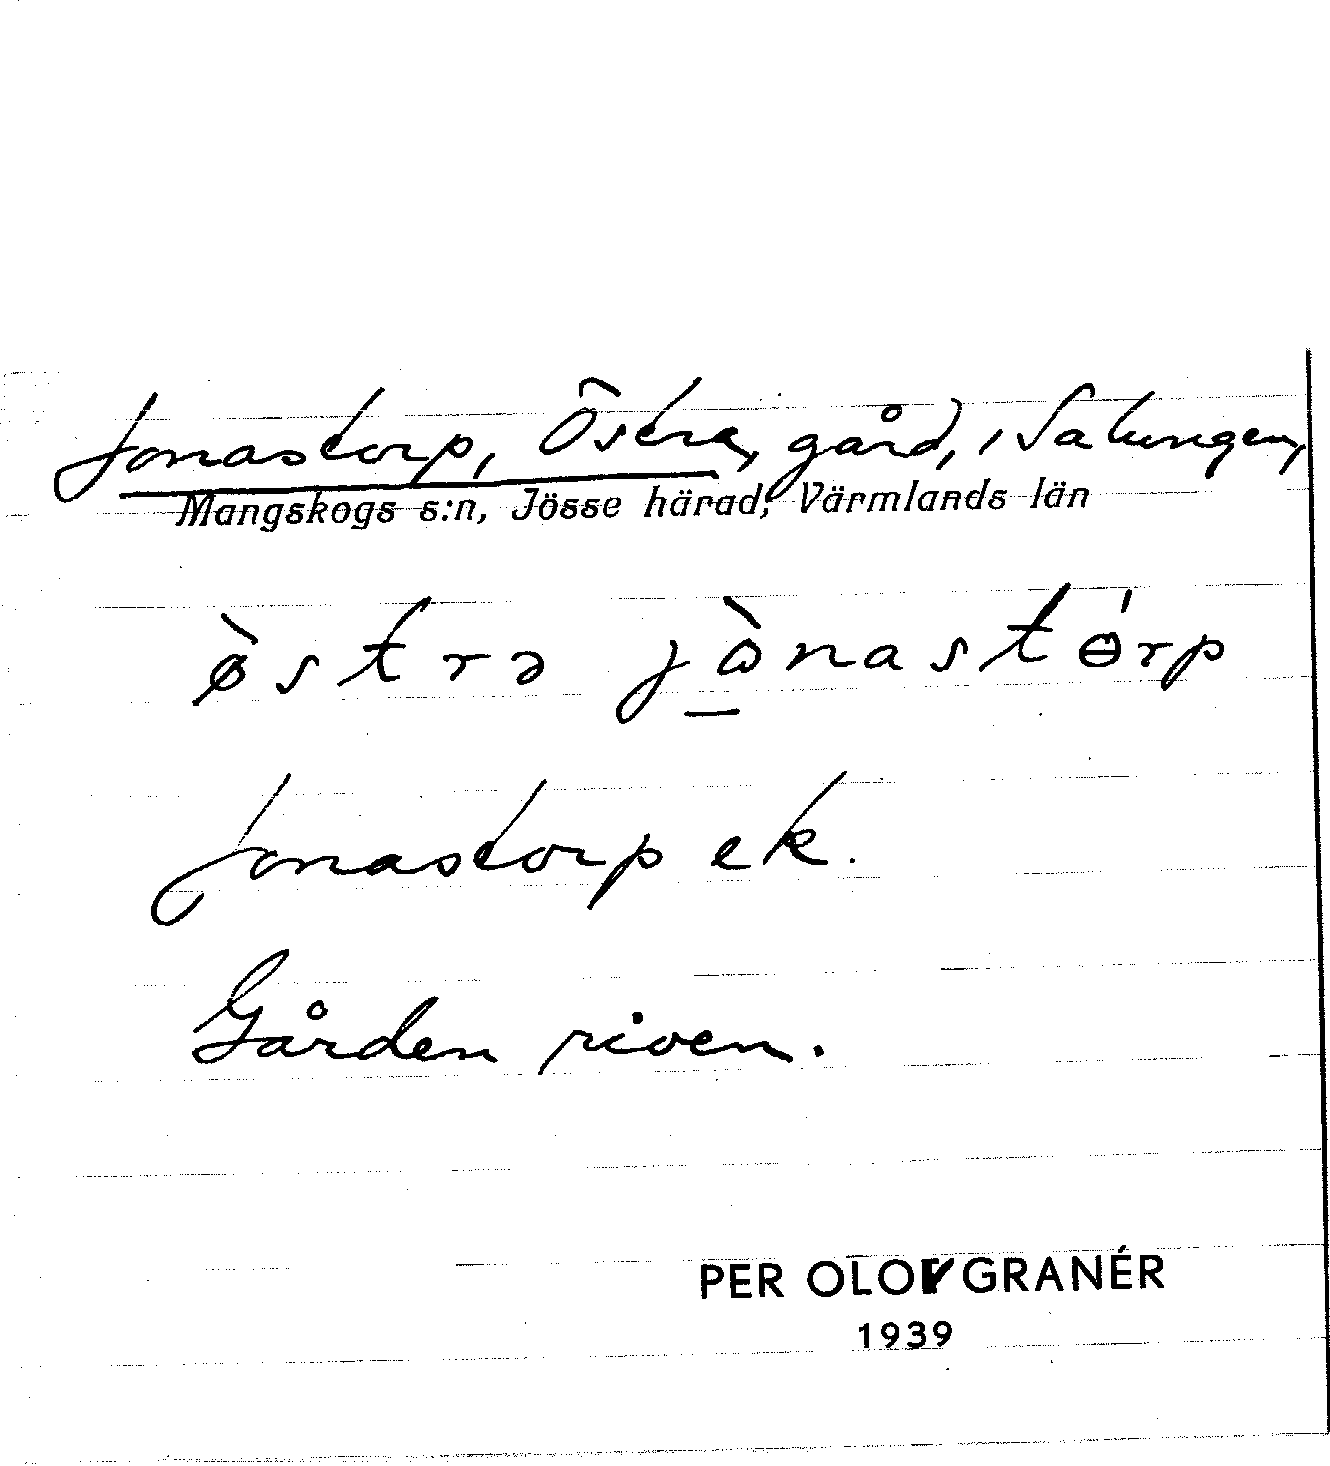 Jonastorp, Östra, gård, i Salungen,
Mangskogs s:n, Jösse härad, Värmlands län
Jonastorp ek.
Gården riven.
PER OLOV GRANÉR
1939